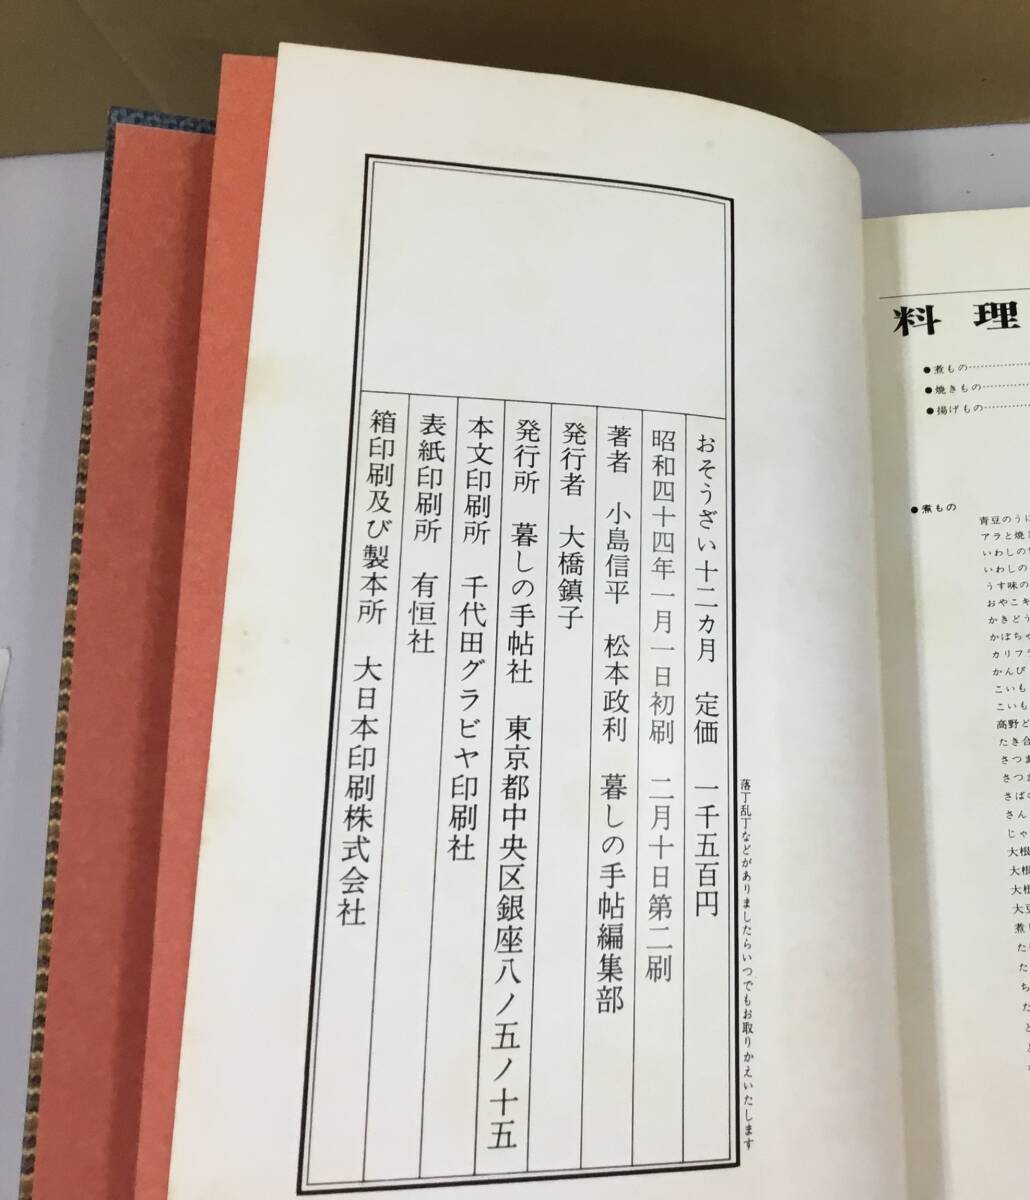 おそうざい十二カ月　定価　一千五百円
昭和四十四年一月一日初刷　二月十日第二刷
著者　小島信平　松本政利　暮しの手帖編集部
発行者　大橋鎮子
発行所　暮しの手帖社　東京都中央区銀座八ノ五ノ十五
本文印刷所　千代田グラビヤ印刷社
表紙印刷所　有恒社
箱印刷及び製本所　大日本印刷株式会社
落丁乱丁などがありましたらいつでもお取りかえいたします
料理
●煮もの
●焼きもの
●揚げもの
●煮もの
青豆のうに
アラと焼
いわしの
いわしの
うす味の
おやこキ
かきどう
かぼちゃ
カリフラ
かんぴ
こいも
こいも
高野ど
たき合
さつま
さつま
さばの
さん
じゃ
大根
大根
大根
大豆
煮
た
た
ち
た
と